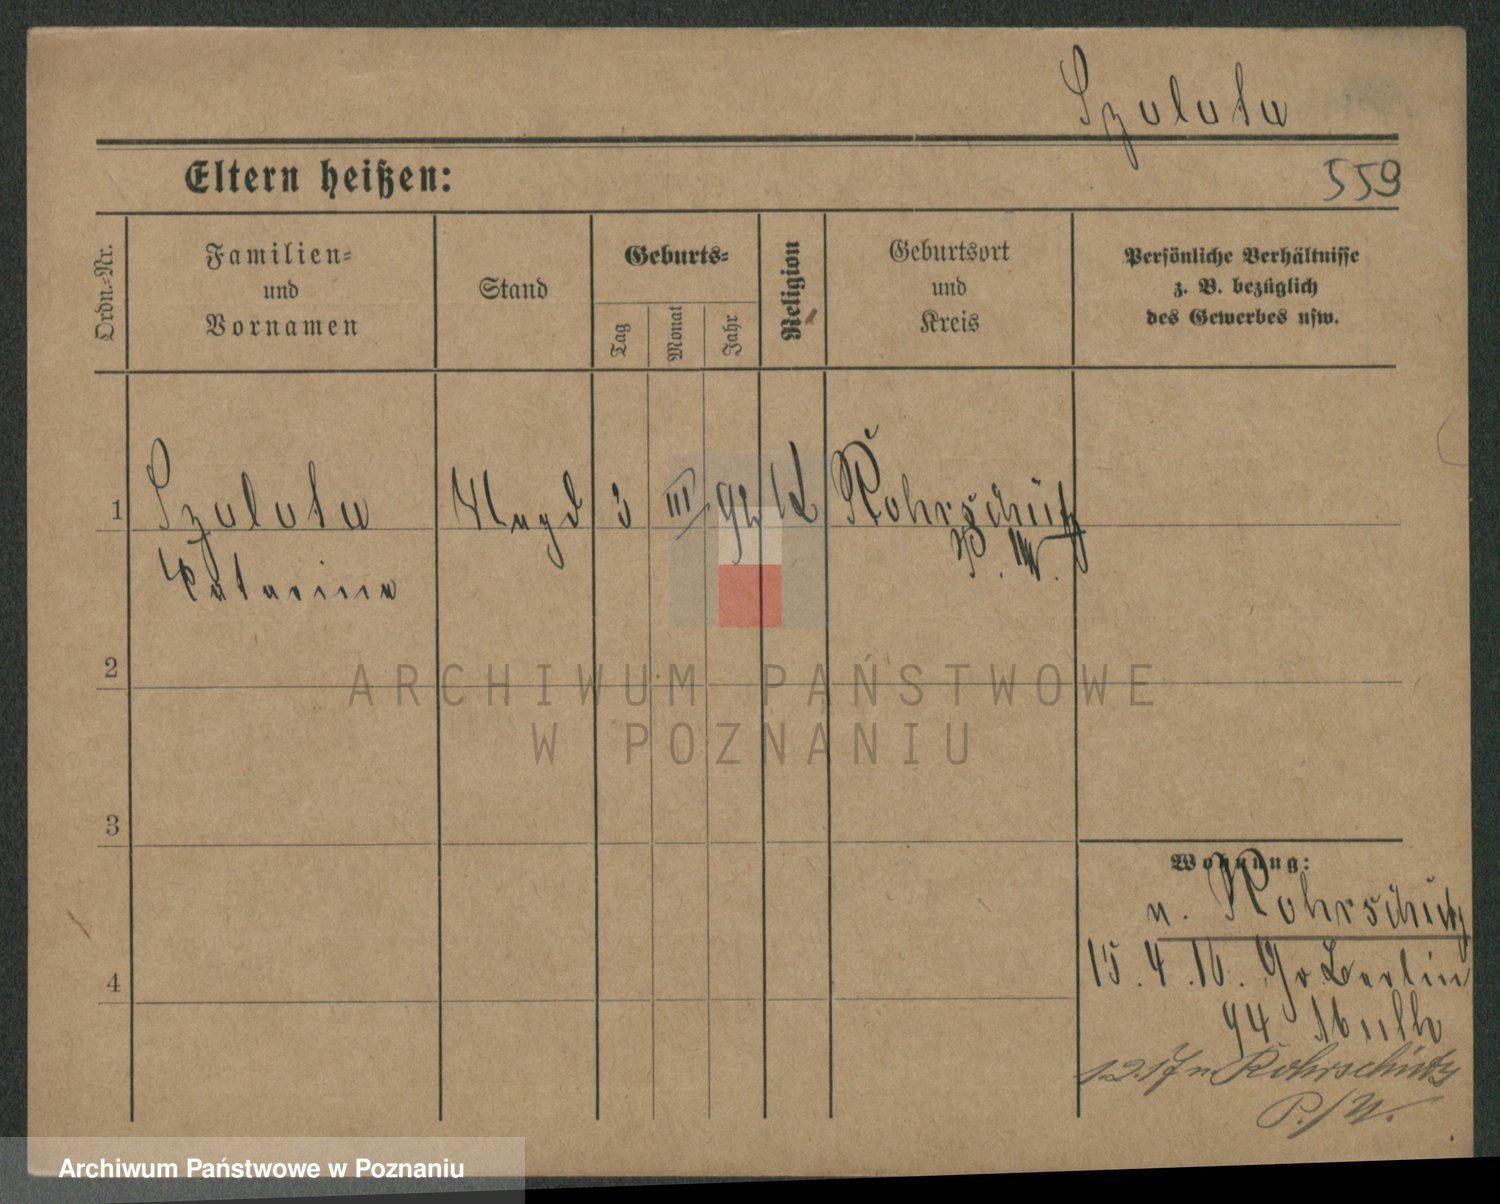 Szulota
Eltern heißen:
559
Ordn.-Nr.
Familien-
und
Vornamen
Stand
Geburts-
Tag
Monat
Jahr
Religion
Geburtsort
und
Kreis
Persönliche Verhältnisse
z. B. bezüglich
des Gewerbes usw.
1
Magd
3
III
K
Rohrschütz
Katarina
P. W.
2
ARCHIWUM PAŃSTWOWE
W POZNANIU
3
Wohnung:
n. Rohrschütz
4
15. 4. 16. Gr Berlin
94
1.2.17 n Rohrschütz
P./W.
Archiwum Państwowe w Poznaniu